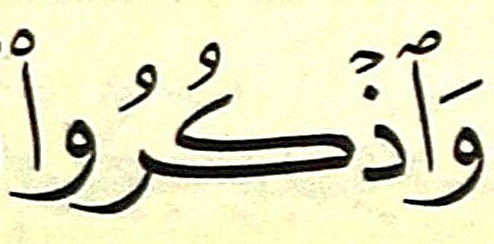 وَٱذْكُرُوا۟